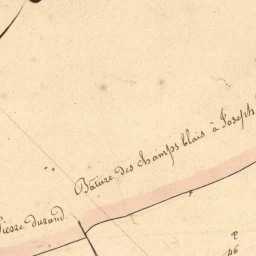 Bature des champs blais à Joseph
Pierre durand